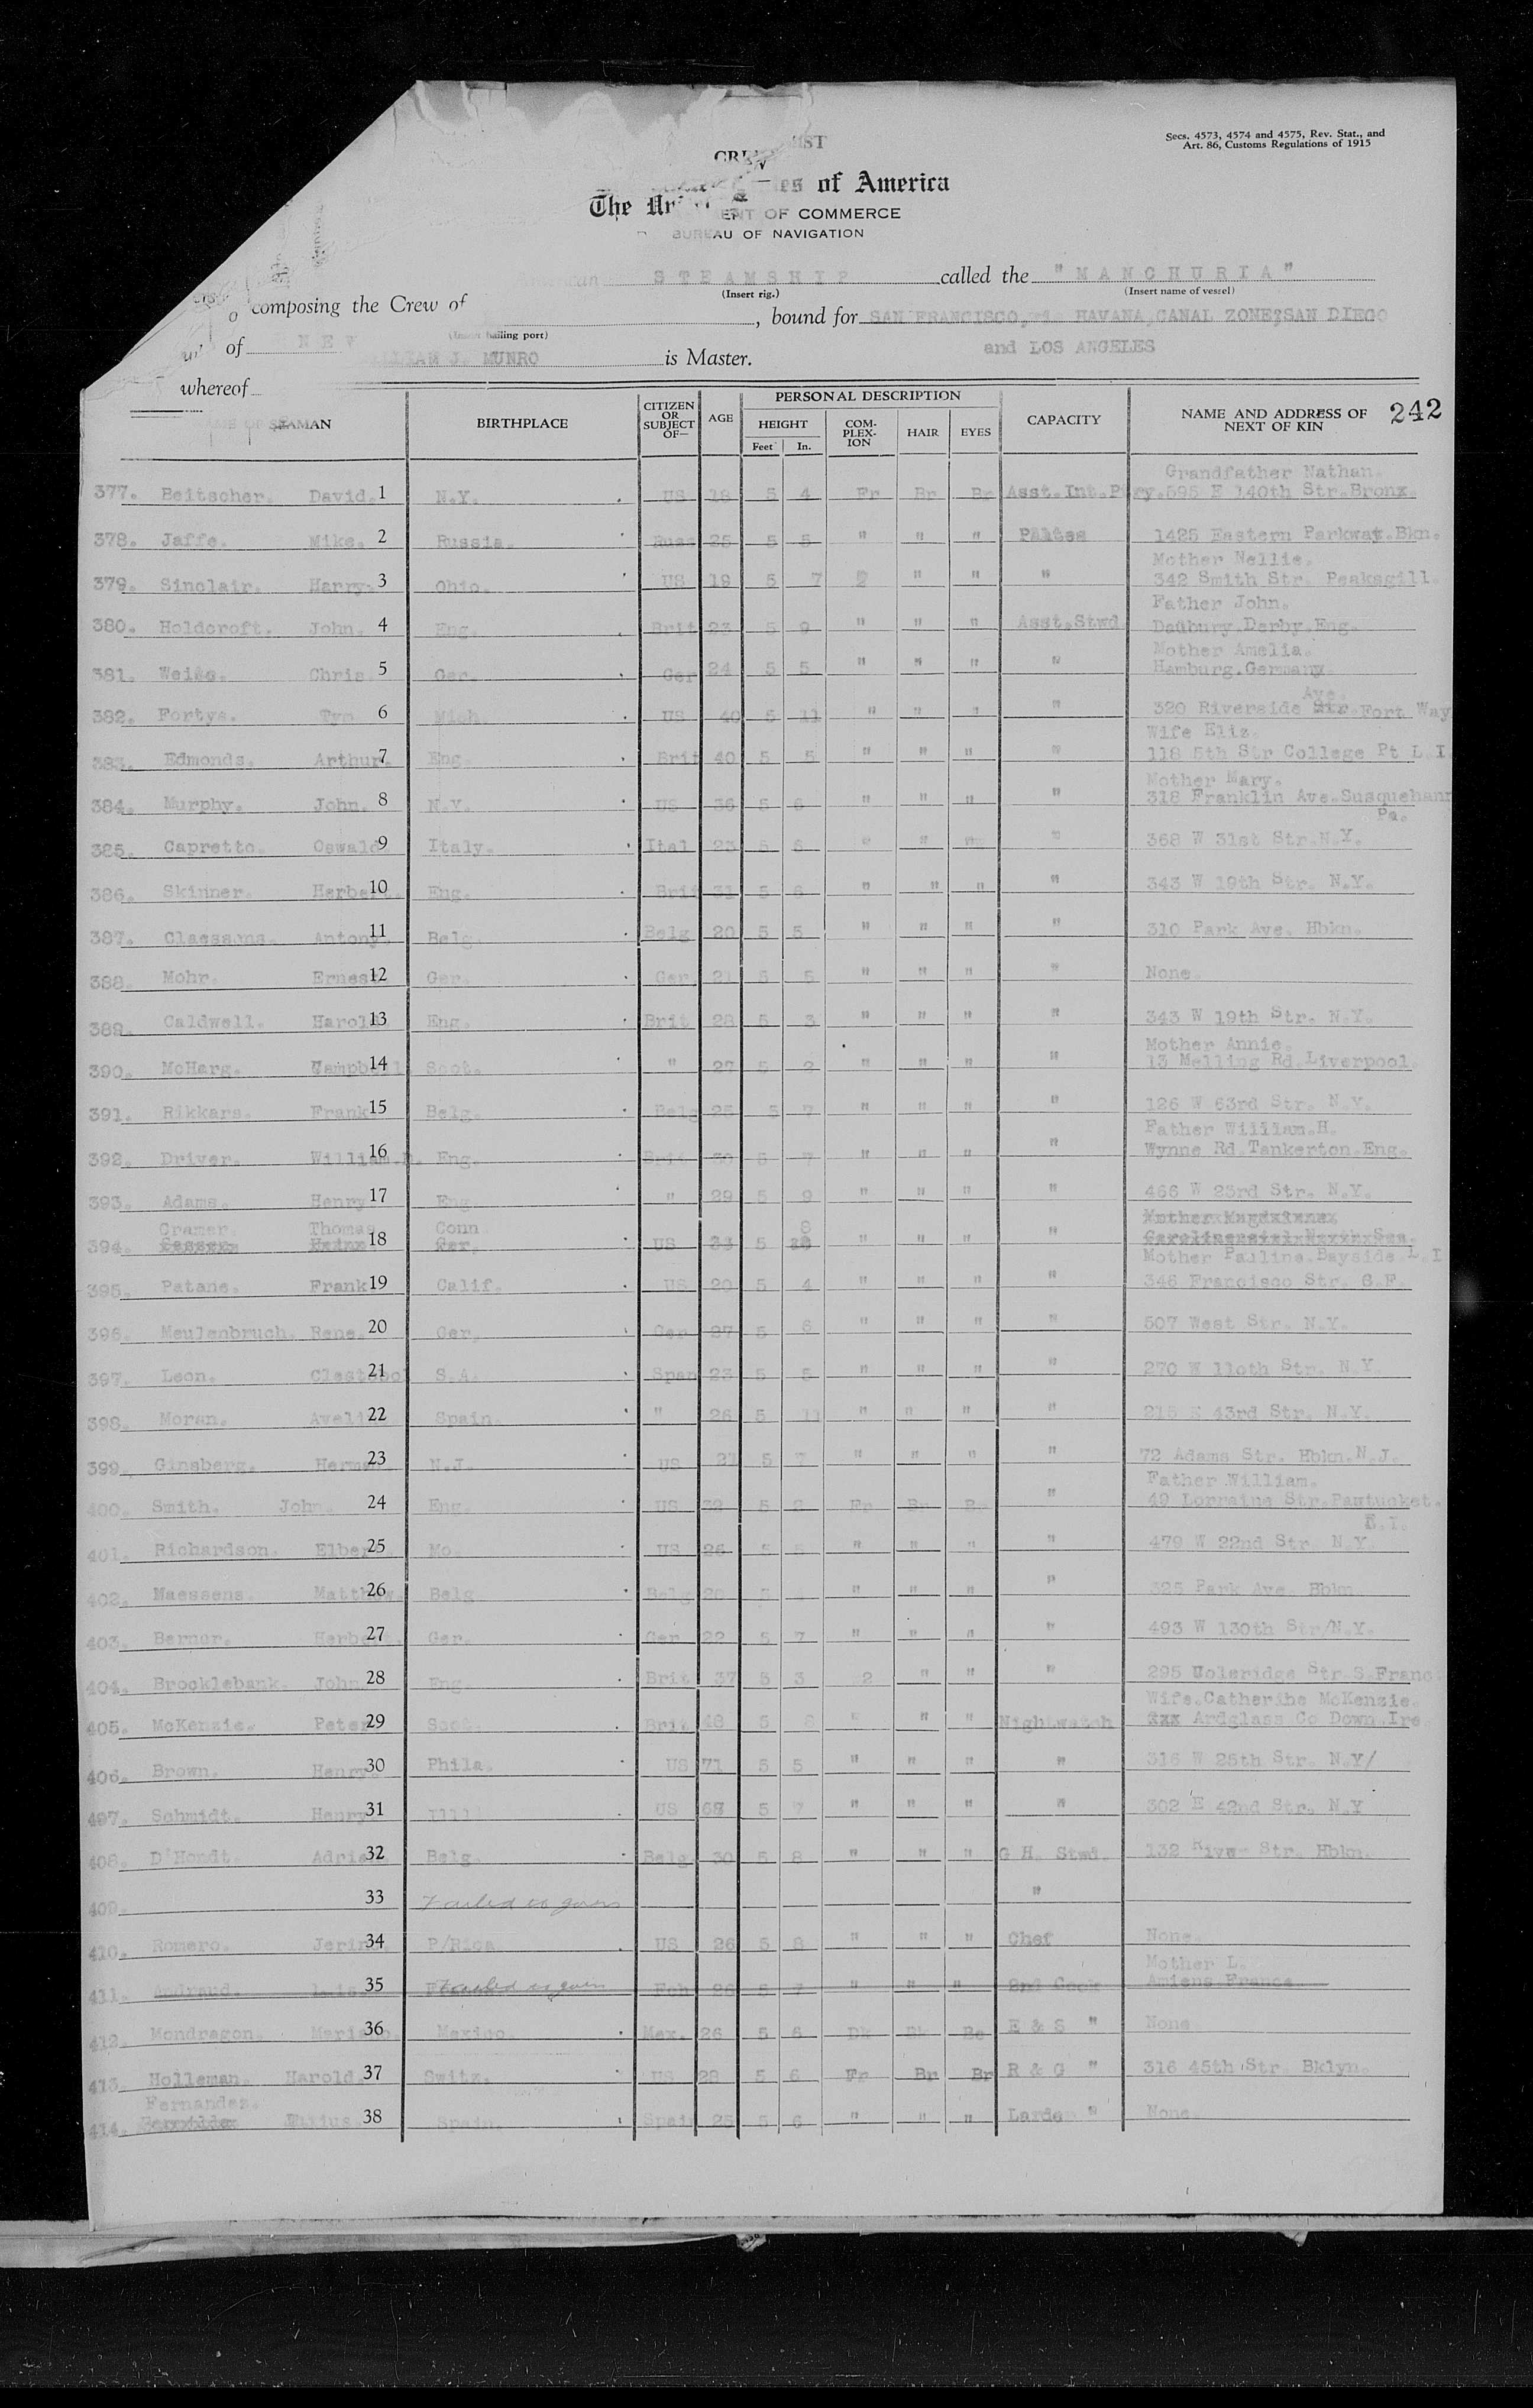 Secs. 4573, 4574 and 4575, Rev. Stat., and
Art. 86, Customs Regulations of 1915
of America
The
OF COMMERCE
BUREAU OF NAVIGATION
STEAMSHIP called the "MANCHURIA"
(Insert rig.) (Insert name of vessel)
composing the Crew of
, bound for SAN FRANCISCO, HAVANA, CANAL ZONE, SAN DIEGO
of
J. MUNRO is Master. and LOS ANGELES
whereof
242
BIRTHPLACE CITIZEN OR SUBJECT OF— AGE PERSONAL DESCRIPTION HEIGHT Feet In. COM-PLEX-ION HAIR EYES CAPACITY NAME AND ADDRESS OF NEXT OF KIN
Grandfather Nathan.
377. Beitscher. David. 1 N.Y. US 18 5 4 Fr Br Br Asst.Int. 595 E 140th Str.Bronx.
378. Jaffe. Mike. 2 Russia. Russ 25 5 5 " " " 1425 Eastern Parkway.Bkn.
Mother Nellie.
379. Sinclair. Harry. 3 Ohio. US 19 5 7 " " " 342 Smith Str. Peakagill.
Father John.
380. Holdcroft. John. 4 Eng. Brit 23 5 9 " " " Asst.Stwd. Derby.Eng.
Mother Amelia.
381. Chris. 5 Ger. Ger 24 5 5 " " " " Hamburg.Germany.
Ave.
382. Fortys. 6 Mich. US 40 5 11 " " " " 320 Riverside Fort Way
Wife Eliz.
383. Edmonds. Arthur. 7 Eng. Brit 40 5 5 " " " " 118 5th Str College Pt L.I.
Mother Mary.
384. Murphy. John. 8 N.Y. US 36 5 6 " " " " 318 Franklin Ave.Susquehann
Pa.
385. Capretto. Oswald 9 Italy. Ital 23 5 6 " " " " 368 W 31st Str.N.Y.
386. Skinner. Herbert. 10 Eng. Brit 31 5 6 " " " " 343 W 19th Str. N.Y.
387. Claessens. Antony. 11 Belg. Belg 20 5 5 " " " " 310 Park Ave. Hbkn.
388. Mohr. Ernest 12 Ger. Ger 21 5 5 " " " " None.
389. Caldwell. Harold. 13 Eng. Brit 28 5 3 " " " " 343 W 19th Str. N.Y.
Mother Annie.
390. McHarg. Campbell 14 Scot. " 27 5 2 " " " " 13 Melling Rd.Liverpool.
391. Rikkars. Frank 15 Belg. Belg 25 5 7 " " " " 126 W 63rd Str. N.Y.
Father William.H.
392. Driver. William. 16 Eng. Brit 30 5 7 " " " " Wynne Rd.Tankerton.Eng.
393. Adams. Henry 17 Eng. " 29 5 9 " " " " 466 W 23rd Str. N.Y.
Cramer. Thomas. Conn 8
394. 18 US 5 " " " "
Mother Pauline.Bayside.L.I
395. Patane. Frank 19 Calif. US 20 5 4 " " " " 346 Francisco Str. S.F.
396. Meulenbruch. Rene. 20 Ger. Ger 27 5 6 " " " " 507 West Str. N.Y.
397. Leon. 21 S.A. Span 23 5 5 " " " " 270 W 110th Str. N.Y.
398. Moran. 22 Spain. " 26 5 11 " " " " 43rd Str. N.Y.
399. Ginsberg. Herman 23 N.J. US 21 5 7 " " " " 72 Adams Str. Hbkn.N.J.
Father William.
400. Smith. John. 24 Eng. US 32 5 Fr Br Br " 49 Lorraine Str.Pawtucket.
R.I.
401. Richardson. Elber 25 Mo. US 26 5 " " " " 479 W 22nd Str. N.Y.
402. Maessens. Matthew. 26 Belg Belg " " " " 325 Park Ave. Hbkn
403. Bernur. Herbe 27 Ger. Ger 22 5 7 " " " " 493 W 130th Str/N.Y.
404. Brocklebank. John 28 Eng Brit 37 5 3 2 " " " 295 Coleridge Str.S.Franc
Wife.Catherine McKenzie.
405. McKenzie. Peter 29 Scot. Brit 48 5 " " " Nightwatch Ardglass Co Down.Ire.
406. Brown. Henry. 30 Phila. US 71 5 5 " " " " 316 W 25th Str. N.Y/
497. Schmidt. Henry 31 Illl US 68 5 7 " " " " 302 E 42nd Str. N.Y
408. D'Hondt. Adria 32 Belg. Belg. 30 5 8 " " " G H. Stwd. 132 River Str. Hbkn.
409. 33 Failed to join "
410. Romero. Jerin 34 P/Rica US 26 5 8 " " " Chef None.
Mother L.
411. Andraud. 35 Failed to join Fch 26 5 7 " " " 2nd Cook Amiens France
412. Mondragon. 36 Mexico. Mex. 26 5 6 Dk Bk E & S " None
413. Holleman. Harold. 37 Switz. US 28 5 6 Fr Br Br R & G " 316 45th Str. Bklyn.
Fernandez.
414. 38 Spain. Spain 25 5 6 " " " Larde " None.